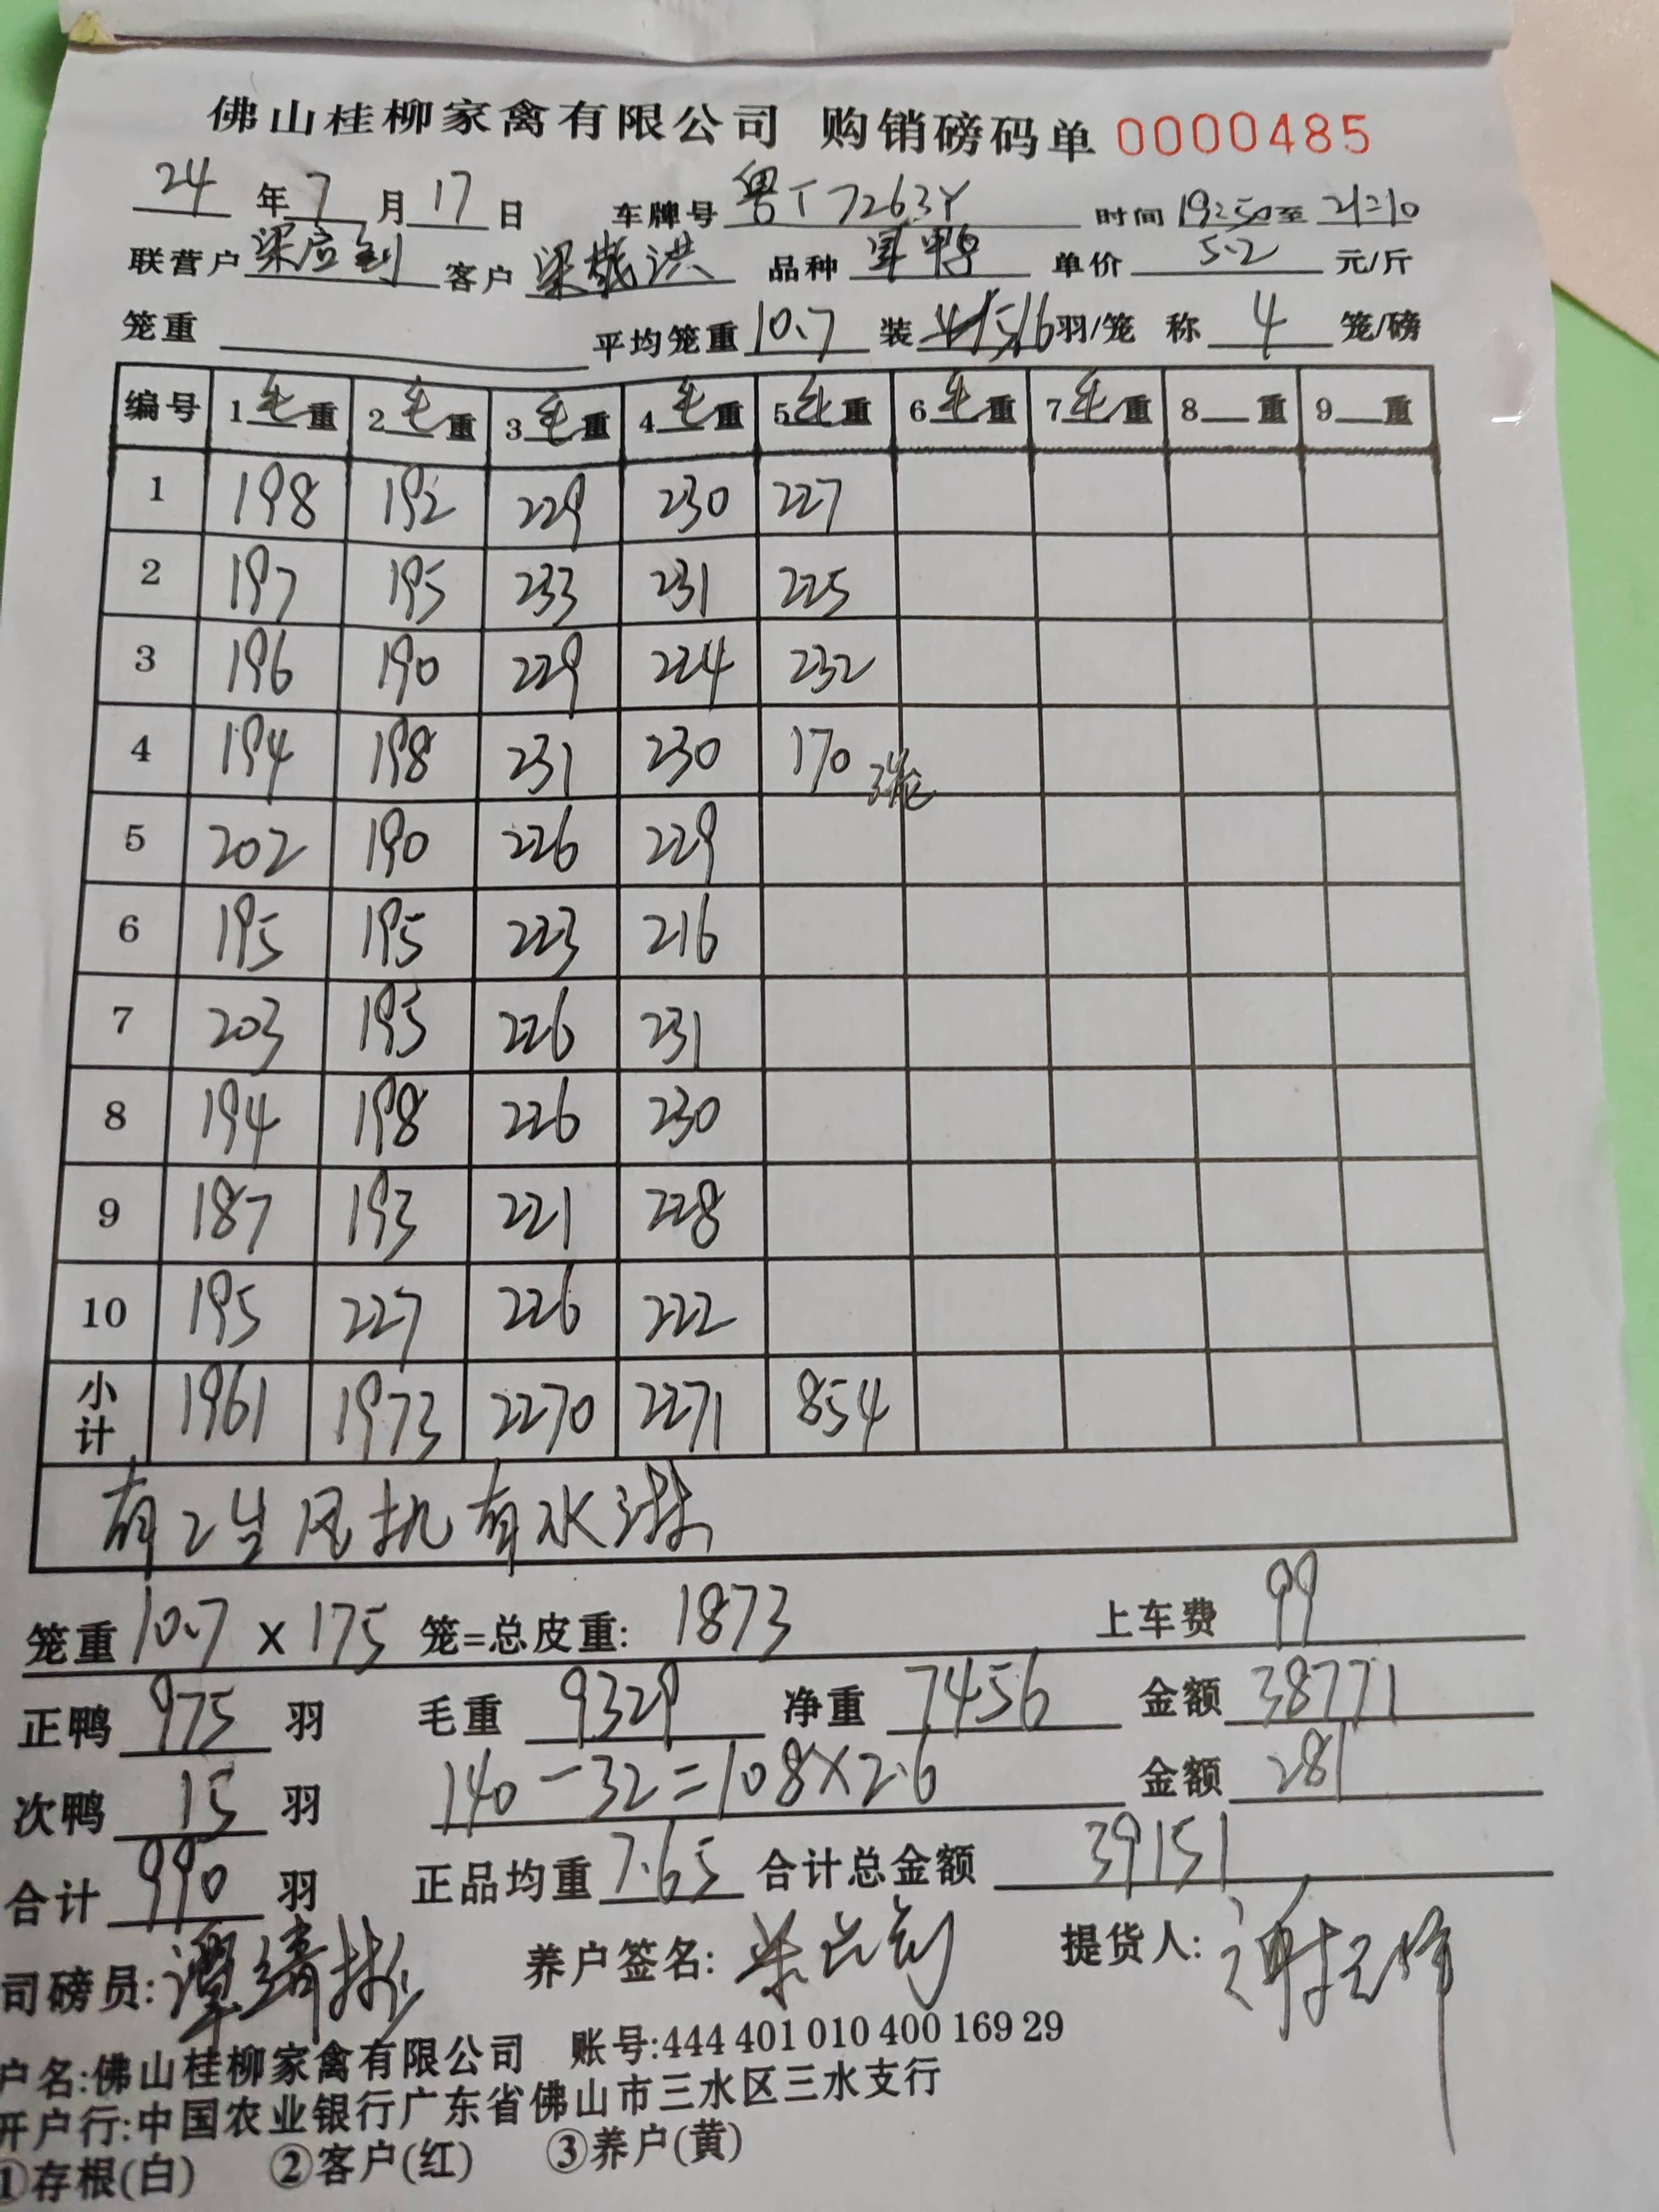 佛山桂柳家禽有限公司 购销磅码单 0000485
24年7月17日 车牌号 粤T7263Y 时间 19:50至21:10
联营户 梁应钊 客户 洪 品种 鸭 单价 5.2 元/斤
笼重 平均笼重 10.7 装 16羽/笼 称 4 笼/磅
编号 1毛重 2毛重 3毛重 4毛重 5毛重 6毛重 7毛重 8重 9重
1 198 192 229 230 227
2 197 195 233 231 225
3 196 190 229 224 232
4 194 198 231 230 170 3笼
5 202 190 226 229
6 195 195 223 216
7 203 195 226 231
8 194 198 226 230
9 187 193 221 228
10 195 227 226 222
小计 1961 1973 2270 2271 854
有2台风机有水淋
笼重10.7 x 175 笼=总皮重: 1873 上车费 99
正鸭 975 羽 毛重 9329 净重 7456 金额 38771
次鸭 15 羽 140-32=108×2.6 金额 281
合计 990 羽 正品均重 7.65 合计总金额 39151
司磅员: 养户签名: 提货人:
户名:佛山桂柳家禽有限公司 账号:444 401 010 400 169 29
开户行:中国农业银行广东省佛山市三水区三水支行
①存根(白) ②客户(红) ③养户(黄)